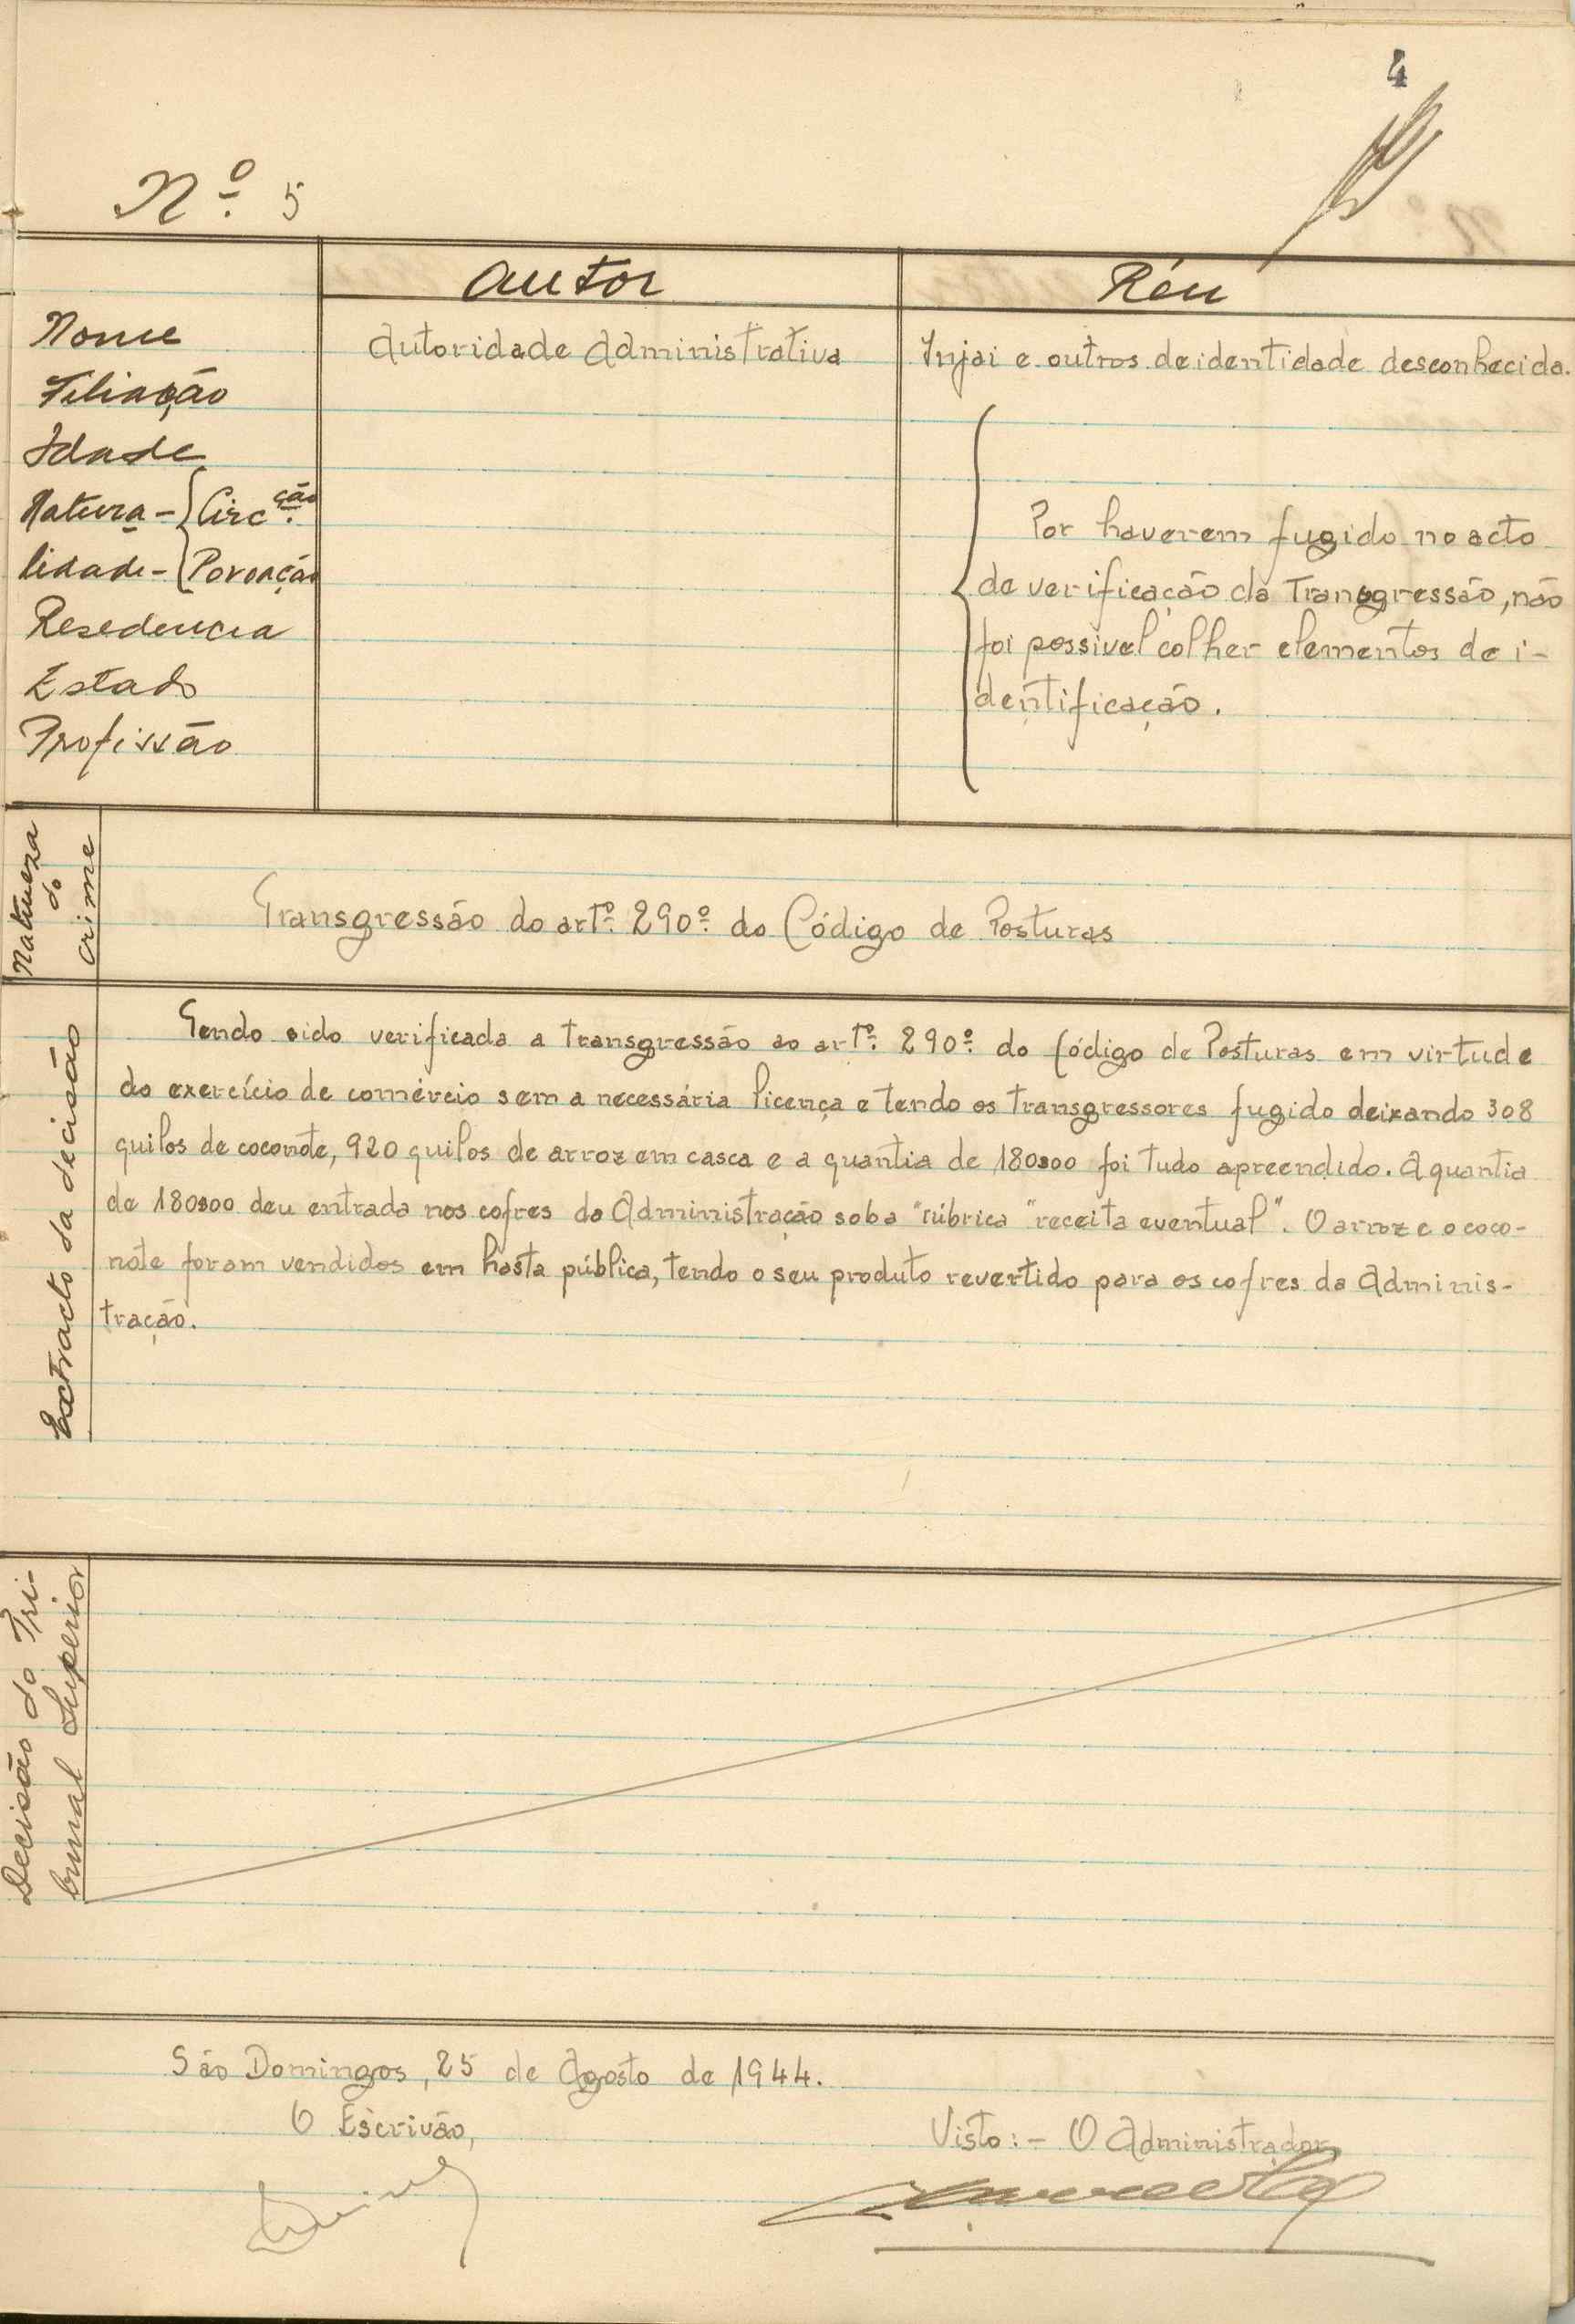 4
Nº 5
Autor
Réu
Nome
Autoridade Administrativa
Injai e outros de identidade desconhecida.
Filiação
Idade
Natura- { Circ.ção
lidade- { Povoação
Resedencia
Estado
Profissão
Por haverem fugido no acto
de verificação da Transgressão, não
foi possivel colher elementos de i-
dentificação.
Natureza
do
crime
Transgressão do artº. 290º. do Código de Posturas
Extracto da decisão
Tendo sido verificada a transgressão ao artº. 290º. do Código de Posturas em virtude
do exercício de comércio sem a necessária licença e tendo os transgressores fugido deixando 308
quilos de coconote, 920 quilos de arroz em casca e a quantia de 180$00 foi tudo apreendido. A quantia
de 180$00 deu entrada nos cofres da Administração sob a "rúbrica "receita eventual". O arroz e o coco-
note foram vendidos em hasta pública, tendo o seu produto revertido para os cofres da Adminis-
tração.
Decisão do Tri-
bunal Superior
São Domingos, 25 de Agosto de 1944.
O Escrivão,
Visto:- O Administrador,